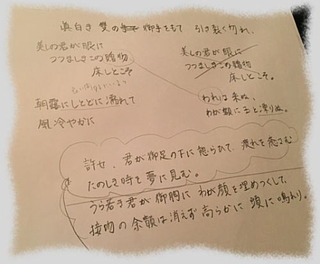 真白き 双の 御手をもて 引き裂く勿れ、
美しの君が眼に
つつましきこの贈物
床しとこそ
朝露にしとどに濡れて
風冷やかに
美しの君が眼に
つつましきこの贈物
床しとこそ。
われは来ぬ、
わが額に玉と凍りぬ。
許せ、君が御足の下に 憩らひて、疲れを癒さむ
たのしき時を夢に見む。
うら若き君が御胸に わが顔を埋めつくして、
接吻の余韻は消えず 高らかに 頭に鳴れり。